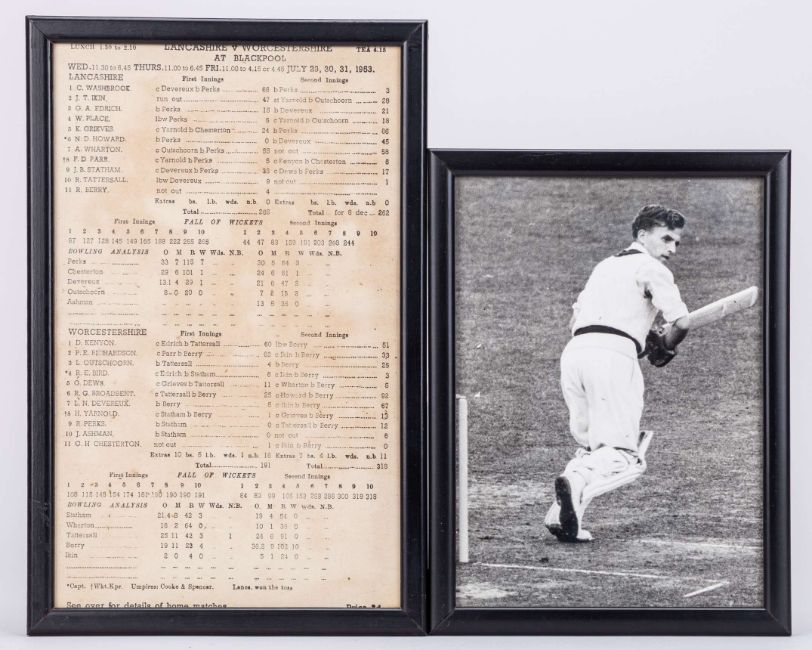 LUNCH 1.30 to 2.10 LANCASHIRE V WORCESTERSHIRE TEA 4.15
AT BLACKPOOL
WED. 11.30 to 6.45 THURS. 11.00 to 6.45 FRI. 11.00 to 4.15 or 4.45 JULY 29, 30, 31, 1953.
LANCASHIRE First Innings Second Innings
1 C. WASHBROOK c Devereux b Perks 68 b Perks 3
2 J. T. IKIN run out 47 st Yarnold b Outschoorn 28
3 G. A. EDRICH b Perks b Devereux 21
4 W. PLACE lbw Perks c Yarnold b Outschoorn 18
5 K. GRIEVES c Yarnold b Chesterton 24 b Perks 66
*6 N. D. HOWARD b Perks 0 b Devereux 45
7 A. WHARTON c Outschoorn b Perks not out 58
†8 F. D. PARR c Yarnold b Perks c Kenyon b Chesterton 6
9 J. B. STATHAM c Devereux b Perks c Dews b Perks 17
10 R. TATTERSALL lbw Devereux 9 not out 1
11 R. BERRY not out 4
Extras bs. l.b. wds. n.b 0 Extras bs. l.b. wds. n.b 0
Total Total for 8 dec 262
First Innings FALL OF WICKETS Second Innings
1 2 3 4 5 6 7 8 9 10 1 2 3 4 5 6 7 8 9 10
44 47 244
BOWLING ANALYSIS O M R W Wds. N.B. O M R W wds. N.B.
Perks 33 7 7 30 3
Chesterton 29 6 101 1 24 6 1
Devereux 13.1 4 29 1 21 6 47 2
Outschoorn 8 0 20 0 7 2
Ashman 13 6 0
WORCESTERSHIRE First Innings Second Innings
1 D. KENYON c Edrich b Tattersall 60 lbw Berry 51
2 P. E. RICHARDSON c Parr b Berry c Ikin b Berry 33
3 L. OUTSCHOORN b Tattersall 4 b Berry 25
*4 R. E. BIRD c Edrich b Statham c Ikin b Berry 3
5 G. DEWS c Grieves b Tattersall 11 c Wharton b Berry
6 R. G. BROADBENT c Tattersall b Berry 25 c Howard b Berry 92
7 L. N. DEVEREUX b Berry c Ikin b Berry 67
†8 H. YARNOLD c Statham b Berry 1 c Grieves b Berry 13
9 R. PERKS b Statham 0 c Tattersall b Berry 12
10 J. ASHMAN b Statham 0 not out 6
11 G. H. CHESTERTON not out 1 c Ikin b Berry 0
Extras 10 bs. 5 l.b. wds. 1 n.b 16 Extras 7 bs. 4 l.b. wds. n.b 11
Total 191 Total 318
First Innings FALL OF WICKETS Second Innings
1 2 3 4 5 6 7 8 9 10 1 2 3 4 5 6 7 8 9 10
190 190 191 84 318 318
BOWLING ANALYSIS O M R W wds. N.B. O. M. R W wds. N.B.
Statham 21.4 8 42 3 19 4 0
Wharton 16 2 64 0 10 1 0
Tattersall 25 11 42 3 1 24 6 0
Berry 19 11 23 4 10
Ikin 2 0 4 0 5 1 24 0
*Capt. †Wkt.Kpr. Umpires: Cooke & Spencer. Lancs. won the toss
See over for details of home matches